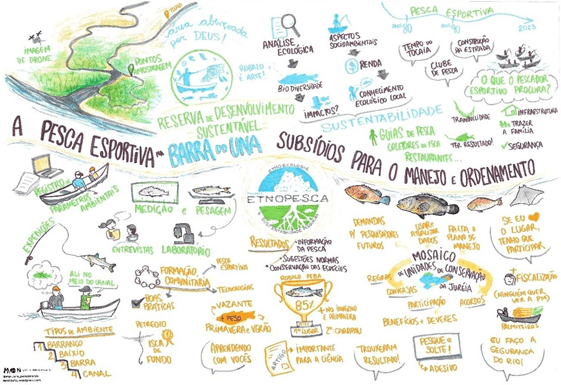 ÁREA ABENÇOADA
POR DEUS!
IMAGEM
DE DRONE
PONTOS
AMOSTRAGEM
ROBALO
É ARTE!
ANÁLISE
ECOLÓGICA
BIODIVERSIDADE
IMPACTOS?
ASPECTOS
SOCIOAMBIENTAIS
RENDA
CONHECIMENTO
ECOLÓGICO LOCAL
PESCA ESPORTIVA
2023
TEMPO DA
TOCAIA
CLUBE
DE PESCA
CONSTRUÇÃO
DA ESTRADA
O QUE O PESCADOR
ESPORTIVO PROCURA?
TRANQUILIDADE
TER RESULTADO!
INFRAESTRUTURA
TRAZER
A FAMÍLIA
SEGURANÇA
SUSTENTABILIDADE
GUIAS DE PESCA
COLETORES DE ISCA
RESTAURANTES...
RESERVA DE DESENVOLVIMENTO
SUSTENTÁVEL
A PESCA ESPORTIVA NA BARRA DO UNA
SUBSÍDIOS PARA O MANEJO E ORDENAMENTO
REGISTRO
PARÂMETROS
AMBIENTAIS
MEDIÇÃO E PESAGEM
EXPEDIÇÕES
ENTREVISTAS
LABORATÓRIO
ALI NO
MEIO DO CANAL
FORMAÇÃO
COMUNITÁRIA
PESCA
ESPORTIVA
TECNOLOGIAS
BOAS
PRÁTICAS
TIPOS DE AMBIENTE
1 BARRANCO
2 BAIXIO
3 BARRA
4 CANAL
PETRECHO
ISCA
DE FUNDO
VAZANTE
+ PESO
PRIMAVERA E VERÃO
APRENDENDO
COM VOCÊS
ETNOPESCA
RESULTADOS
INFORMAÇÃO
DA PESCA
SUGESTÕES NORMAS
CONSERVAÇÃO DAS ESPÉCIES
ROBALO PEBA
85%
1º LUGAR
2º CARAPAU
ARTIGO
+ IMPORTANTE
PARA A CIÊNCIA
DEMANDAS
P/ PESQUISADORES
FUTUROS
DADOS
FALTA O
PLANO DE
MANEJO
SE EU
O LUGAR,
TENHO QUE
PARTICIPAR
MOSAICO
DE UNIDADES DE CONSERVAÇÃO
DA JURÉIA
REGRAS
CONVERSAS
PARTICIPAÇÃO
ACORDOS
BENEFÍCIOS + DEVERES
FISCALIZAÇÃO
(NINGUÉM QUER
VER A PM)
TROUXERAM
RESULTADO!
PESQUE
E SOLTE!
+ ADESIVO
EU FAÇO A
SEGURANÇA
DO RIO!